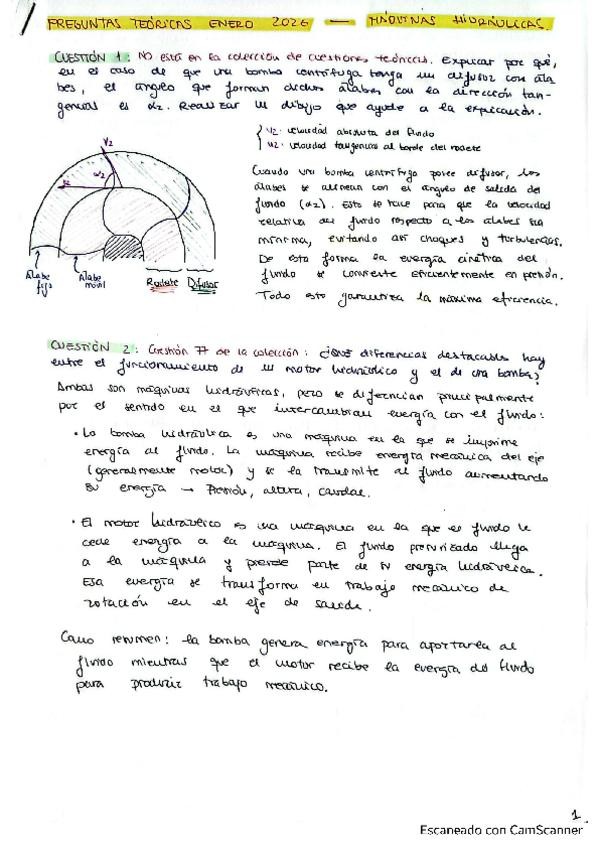 PREGUNTAS TEÓRICAS ENERO 2026 — MÁQUINAS HIDRÁULICAS.
CUESTIÓN 1: No está en la colección de cuestiones teóricas. Explicar por qué,
en el caso de que una bomba centrífuga tenga un difusor con ála
bes, el ángulo que forman dichos álabes con la dirección tan-
gencial es α2. Realizar un dibujo que ayude a la explicación.
V2: velocidad absoluta del fluido
u2: velocidad tangencial al borde del rodete
V2
α2
u2
Álabe fijo
Álabe móvil
Rodete Difusor
Cuando una bomba centrífuga posee difusor, los
álabes se alinean con el ángulo de salida del
fluido (α2). Esto se hace para que la velocidad
relativa del fluido respecto a los álabes sea
mínima, evitando así choques y turbulencias.
De esta forma la energía cinética del
fluido se convierte eficientemente en presión.
Todo esto garantiza la máxima eficiencia.
CUESTIÓN 2: Cuestión 77 de la colección: ¿Qué diferencias destacables hay
entre el funcionamiento de un motor hidráulico y el de una bomba?
Ambas son máquinas hidráulicas, pero se diferencian principalmente
por el sentido en el que intercambian energía con el fluido:
• La bomba hidráulica es una máquina en la que se imprime
energía al fluido. La máquina recibe energía mecánica del eje
(generalmente motor) y se la transmite al fluido aumentando
su energía → Presión, altura, caudal.
• El motor hidráulico es una máquina en la que el fluido le
cede energía a la máquina. El fluido presurizado llega
a la máquina y pierde parte de su energía hidráulica.
Esa energía se transforma en trabajo mecánico de
rotación en el eje de salida.
Como resumen: la bomba genera energía para aportarla al
fluido mientras que el motor recibe la energía del fluido
para producir trabajo mecánico.
1
Escaneado con CamScanner